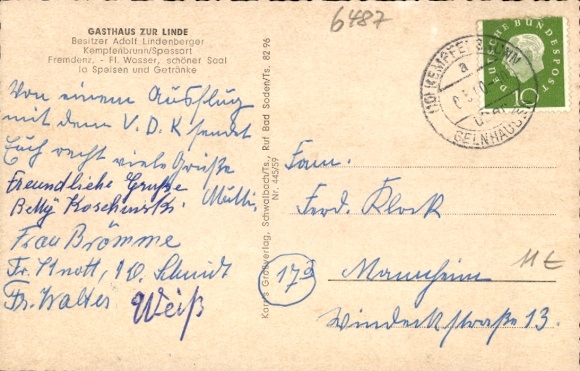 GASTHAUS ZUR LINDE
Besitzer Adolf Lindenberger
Kempfenbrunn/Spessart
Fremdenz. - Fl. Wasser, schöner Saal
Ia Speisen und Getränke
6487
Von einem Ausflug
mit dem V.D.K sendet
Euch recht viele Grüße
Mutti
Freundliche Grüße
Betty Koschinski.
Frau Brömme
Fr. Knott, Schmidt
Fr. Walter
Weiß
Korr's Großverlag, Schwalbach/Ts., Ruf Bad Soden/Ts. 8296
Nr. 445/59
DEUTSCHE BUNDESPOST
10
KEMPFENBRUNN
a
GELNHAUSEN
Fam.
Ferd. Klock
17a
Mannheim
Windeckstraße 13.
11 €